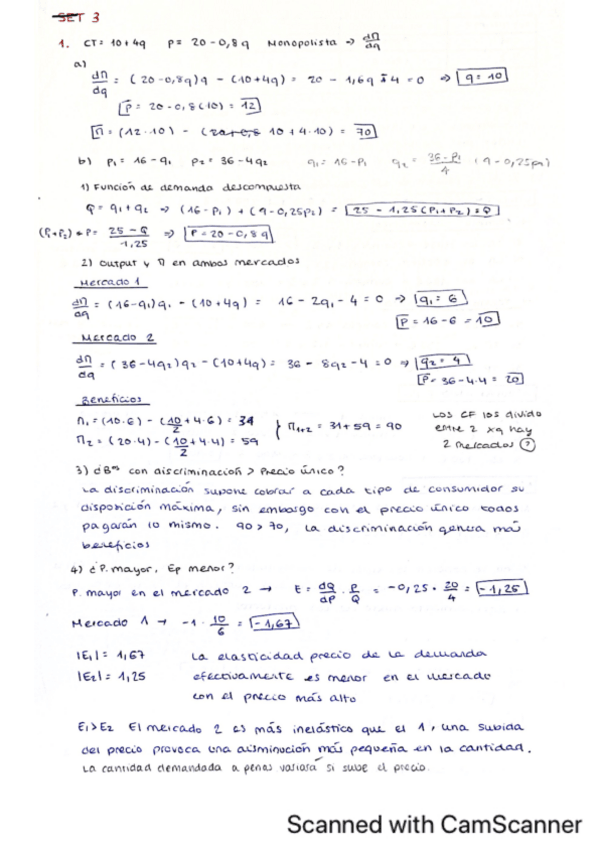 SET 3
1. CT = 10 + 4q P = 20 - 0,8q Monopolista → dΠ/dq
a)
dΠ/dq = (20 - 0,8q)q - (10 + 4q) = 20 - 1,6q - 4 = 0 ⇒ q = 10
P = 20 - 0,8(10) = 12
Π = (12·10) - (10 + 4·10) = 70
b) P₁ = 16 - q₁ P₂ = 36 - 4q₂ q₁ = 16 - P₁ q₂ = 36 - P₂/4 (9 - 0,25P₂)
1) Función de demanda descompuesta
Q = q₁ + q₂ ⇒ (16 - P₁) + (9 - 0,25P₂) = 25 - 1,25(P₁ + P₂) = Q
(P₁ + P₂) = P = 25 - Q/-1,25 ⇒ P = 20 - 0,8q
2) Output y Π en ambos mercados
Mercado 1
dΠ/dq = (16 - q₁)q₁ - (10 + 4q) = 16 - 2q₁ - 4 = 0 → q₁ = 6
P = 16 - 6 = 10
Mercado 2
dΠ/dq = (36 - 4q₂)q₂ - (10 + 4q) = 36 - 8q₂ - 4 = 0 ⇒ q₂ = 4
P = 36 - 4·4 = 20
Beneficios
Π₁ = (10·6) - (10/2 + 4·6) = 34
Π₂ = (20·4) - (10/2 + 4·4) = 59
} Π₁₊₂ = 31 + 59 = 90
Los CF los divido
entre 2 xq hay
2 mercados (?)
3) ¿Bºˢ con discriminación > Precio único?
La discriminación supone cobrar a cada tipo de consumidor su
disposición máxima, sin embargo con el precio único todos
pagarán lo mismo. 90 > 70, la discriminación genera más
beneficios
4) ¿P. mayor, Ep menor?
P. mayor en el mercado 2 → E = dQ/dP · P/Q = -0,25 · 20/4 = -1,25
Mercado 1 → -1 · 10/6 = -1,67
|E₁| = 1,67 La elasticidad precio de la demanda
|E₂| = 1,25 efectivamente es menor en el mercado
con el precio más alto
E₁ > E₂ El mercado 2 es más inelástico que el 1, una subida
del precio provoca una disminución más pequeña en la cantidad.
La cantidad demandada a penas variará si sube el precio.
Scanned with CamScanner